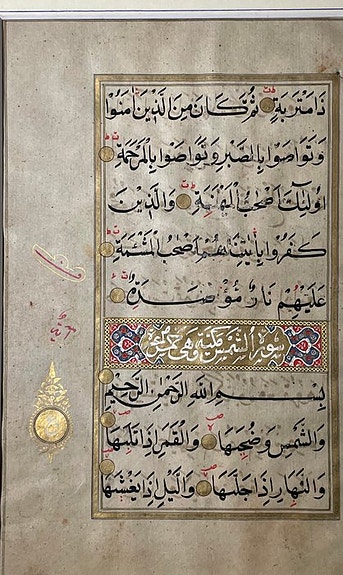 ذَا مَتْرَبَةٍ ثُمَّ كَانَ مِنَ الَّذِينَ اٰمَنُوا
وَتَوَاصَوْا بِالصَّبْرِ وَتَوَاصَوْا بِالْمَرْحَمَةِ
اُولٰئِكَ اَصْحٰبُ الْمَيْمَنَةِ وَالَّذِينَ
كَفَرُوا بِاٰيٰتِنَا هُمْ اَصْحٰبُ الْمَشْئَمَةِ
عَلَيْهِمْ نَارٌ مُؤْصَدَةٌ
سورة الشمس مكية وهي خمس عشرة
بِسْمِ اللّٰهِ الرَّحْمٰنِ الرَّحِيمِ
وَالشَّمْسِ وَضُحٰيهَا وَالْقَمَرِ اِذَا تَلٰيهَا
وَالنَّهَارِ اِذَا جَلّٰيهَا وَالَّيْلِ اِذَا يَغْشٰيهَا